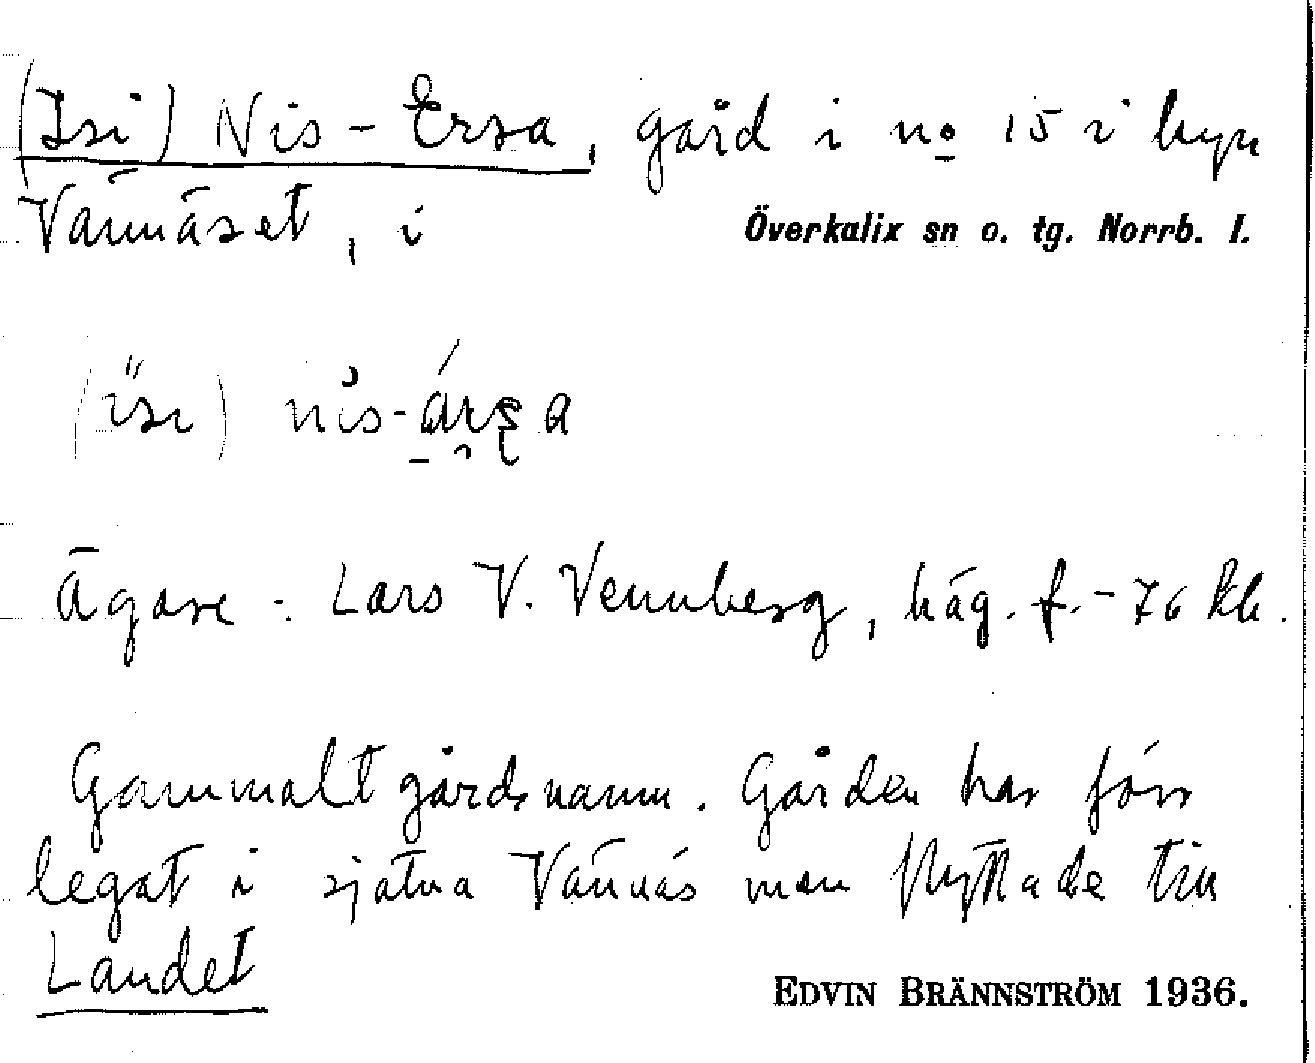 (Isi) Nis-Ersa, gård i no 15 i byn
Vännäset, i Överkalix sn o. tg. Norrb. l.
(isi) nis-ärsa
Ägare: Lars V. Vennberg, häg. f. -76
Gammalt gårdsnamn. Gården har förr
legat i själva Vännäs men flyttade till
Landet
EDVIN BRÄNNSTRÖM 1936.